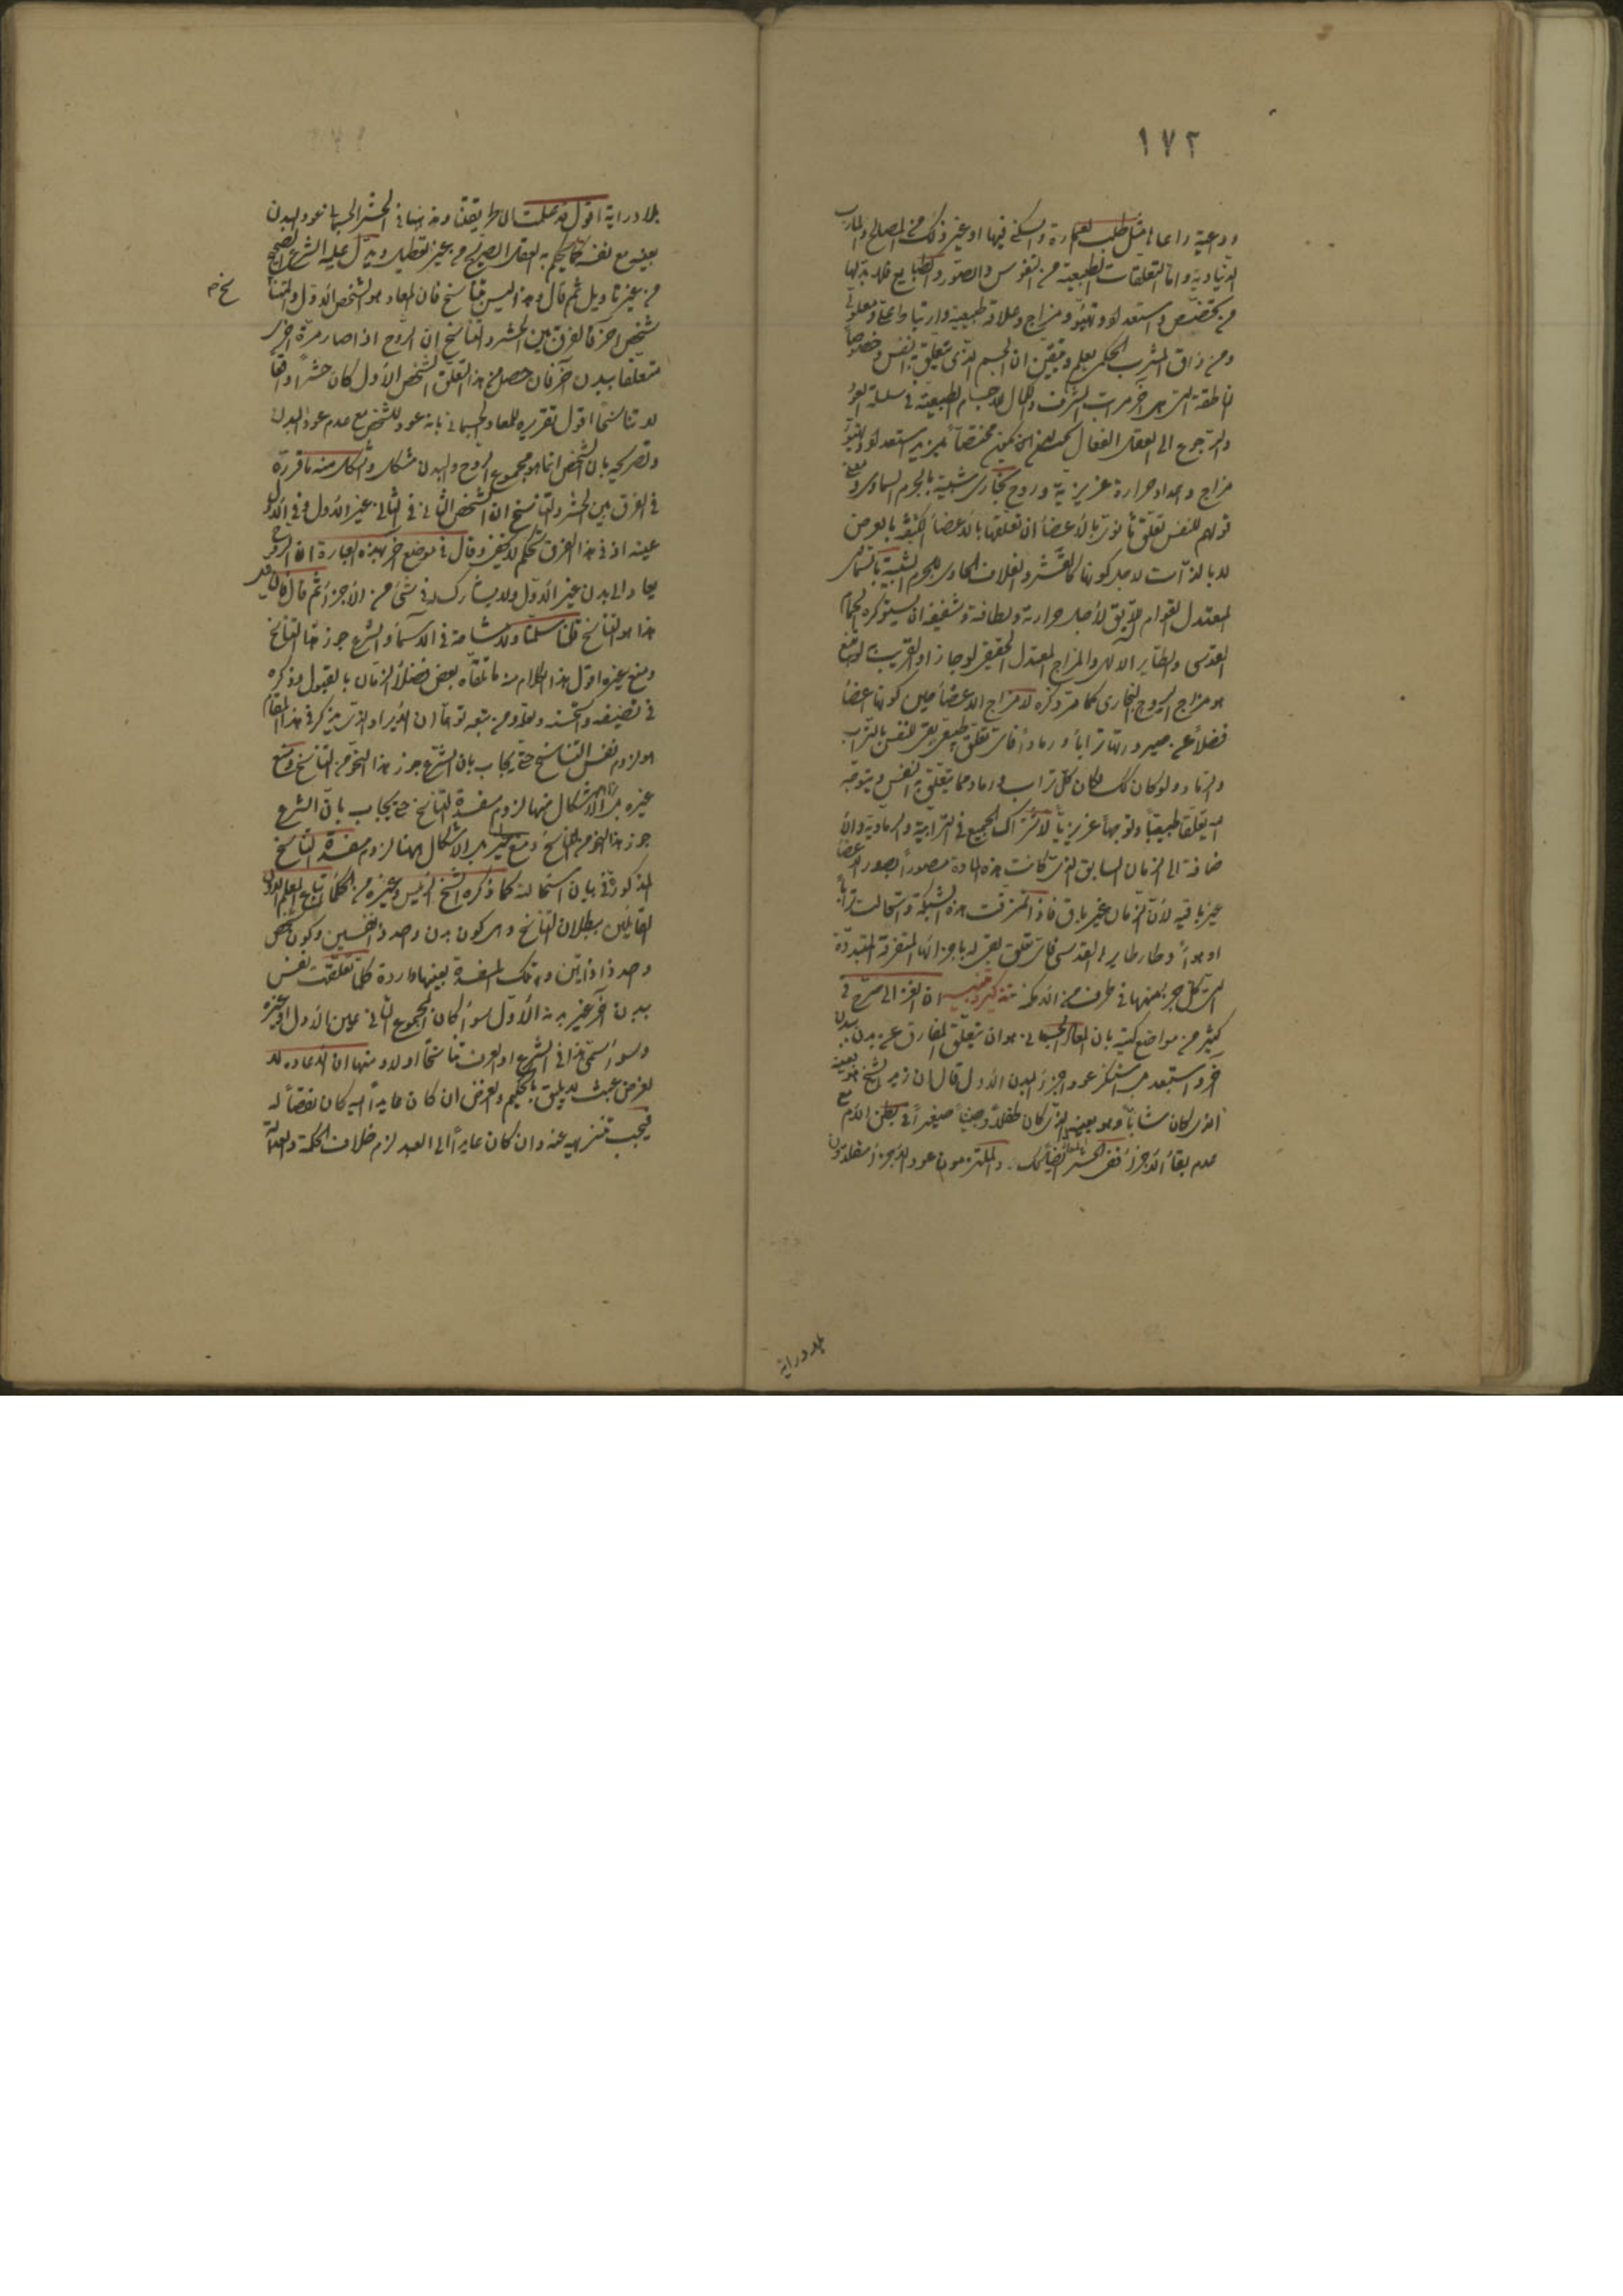 ١٧٢
وداعية راعا ها مثل طلب لعمارة والسكنى فيها او غير ذلك من المصالح والمآرب
الدنياوية واما التعلقات الطبيعية من النفوس والصور والطبايع فلا بد لها
من مخصص واستعداد وتهيؤ ومزاج وعلاقة طبيعية وارتباط
ومن ذاق المشرب الحكمى يعلم ويتيقن ان الجسم الذى يتعلق به نفس وخصوصا
ناطقة التى هى آخر مراتب الشرف والكمال للاجسام الطبيعية فى سلسلة العود
والرجوع الى العقل الفعال يجب ان يكون مختصا بمزيد استعداد وتهيؤ
مزاج واعداد حرارة غريزية وروح بخارى شبيه بالجرم السماوى ومعنى
قولهم للنفس تعلق ثانوى بالاعضاء ان تعلقها بالاعضاء الكثيفة بالعرض
لا بالذات لاجل كونها كالقشر والغلاف الحاوى للجرم الشبيه بالسماوى
المعتدل القوام اللايق لاجل حرارته ولطافته وشفيفه ان يستوكره الحمام
القدسى والطاير الالهى والمزاج المعتدل الحقيقى لو جاز او القريب لو وقع
هو مزاج الروح البخارى كما مر ذكره لا مزاج الاعضاء حين كونها اعضاء
فضلا عن صيرورتها ترابا ورمادا فاى تعلق طبيعى بقى للنفس بالتراب
والرماد ولو كان كك لكان كل تراب ورماد مما يتعلق به النفس ويتوجه
اليه تعلقا طبيعيا وتوجها غريزيا لاشتراك الجميع فى الترابية والرمادية والا
ضافة الى الزمان السابق الذى كانت هذه المادة مصورا بصور الاعضاء
غير باقيه لان الزمان غير باق فاذا تمزقت هذه الشبكة واستحالت ترابا
او هواء وطار طايرها القدسى فاى تعلق بقى له باجزائها المتفرقة المتبددة
التى كل جزء منها فى طرف من الامكنة تذكير وتنبيه ان الغزالى صرح فى
كثير من مواضع كتبه بان المعاد الجسمانى هو ان يتعلق المفارق عن بدن ببدن
آخر واستبعد بل استنكر عود اجزاء البدن الاول قال ان زيد الشيخ هو بعينه
الذى كان شابا وهو بعينه الذى كان طفلا وجنينا صغيرا فى بطن الام مع
عدم بقاء الاجزاء ففى الحشر ايضا كك والملتزمون عود الاجزاء مقلدون
بلا دراية
بلا دراية اقول قد علمت ان طريقتنا ومذهبنا فى الحشر الجسمانى عود البدن
بعينه مع نفسه كما يحكم به العقل الصريح من غير تعطيل ويدل عليه الشرع الصحيح
من غير تاويل ثم قال وهذا ليس بتناسخ فان المعاد هو الشخص الاول والمتناسخ
شخص آخر فالفرق بين الحشر والتناسخ ان الروح اذا صار مرة اخرى
متعلقا ببدن آخر فان حصل من هذا التعلق الشخص الاول كان حشرا واقعا
لا تناسخا اقول تقريره للمعاد الجسمانى بانه عود للشخص مع عدم عود البدن
وتصريحه بان الشخص انما هو مجموع الروح والبدن مشكل والمشكل منه ما قرره
فى الفرق بين الحشر والتناسخ ان الشخص الثانى فى الثانى غير الاول وفى الاول
عينه اذ فى هذا الفرق تحكم لا يخفى وقال فى موضع آخر بهذه العبارة ان الروح
يعاد الى بدن غير الاول ولا يشارك له فى شئ من الاجزاء ثم قال فان قيل
هذا هو التناسخ قلنا سلمنا ولا مشاحة فى الاسماء والشرع جوز هذا التناسخ
ومنع غيره اقول هذا الكلام منه مما تلقاه بعض فضلاء الزمان بالقبول وذكره
فى تصنيفه واستحسنه وهو ومن تبعه توهما ان الايراد الذى يذكر فى هذا المقام
هو لزوم نفس التناسخ حتى يجاب بان الشرع جوز هذا النحو من التناسخ ومنع
غيره بل الاشكال منها لزوم مفسدة التناسخ حتى يجاب بان الشرع
جوز هذا النحو من التناسخ ومنع غيره بل الاشكال ههنا لزوم مفسدة التناسخ
المذكورة فى بيان استحالته كما ذكره الشيخ الرئيس وغيره من الحكماء اتباع المعلم الاول
القائلين ببطلان التناسخ وهى كون بدن واحد ذا نفسين وكون شخص
واحد ذا ذاتين وتلك المفسدة بعينها واردة كلما تعلقت نفس
ببدن آخر غير بدنه الاول سواء كان المجموع الثانى عين الاول او غيره
وسواء سمى هذا فى الشرع او العرف تناسخا اولا ومنها ان الاعادة لا
لغرض عبث لا يليق بالحكيم والغرض ان كان عايدا اليه كان نقصا له
فيجب تنزيهه عنه وان كان عايدا الى العبد لزم خلاف الحكمة والعدالة